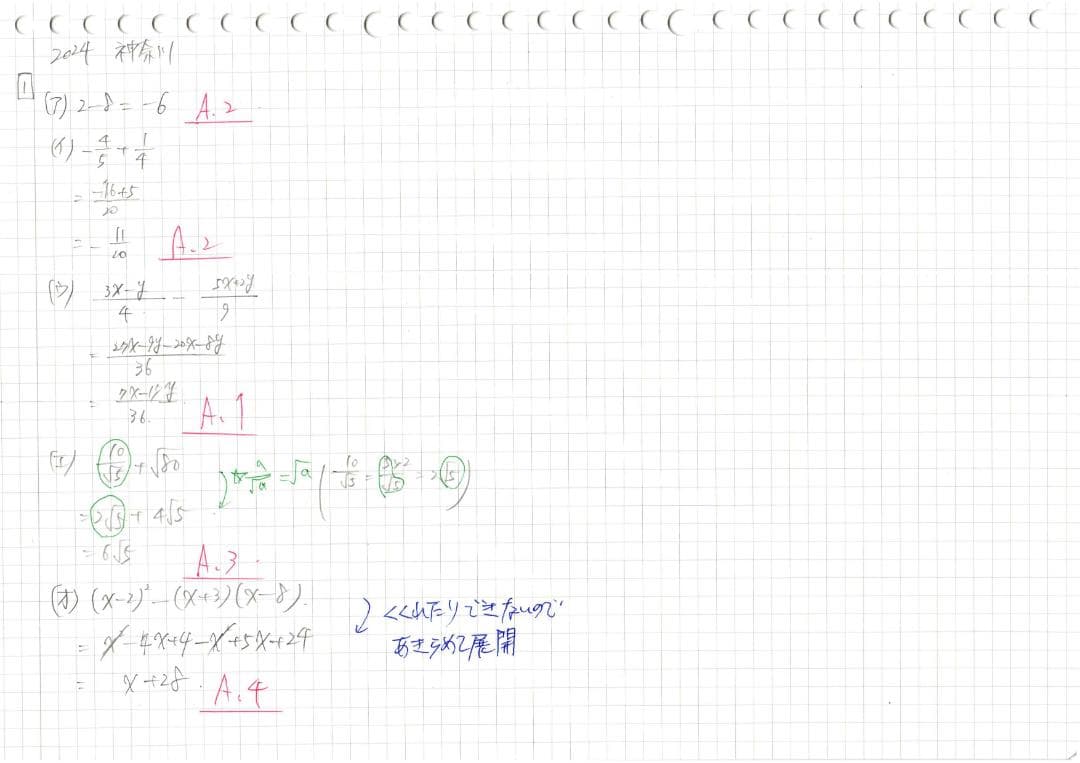 2024 神奈川
1
(ア) 2-8=-6 A.2
(イ) -4/5+1/4
= -16+5/20
= -11/20 A.2
(ウ) 3x-y/4 - 5x+2y/9
= 27x-9y-20x-8y/36
= 7x-17y/36 A.1
(エ) 10/√5+√80 ☆a/√a=√a (10/√5=5×2/√5=2√5)
=2√5+4√5
=6√5 A.3
(オ) (x-2)²-(x+3)(x-8) くくれたりできないので
= x²-4x+4-x²+5x+24 あきらめて展開
= x+28 A.4